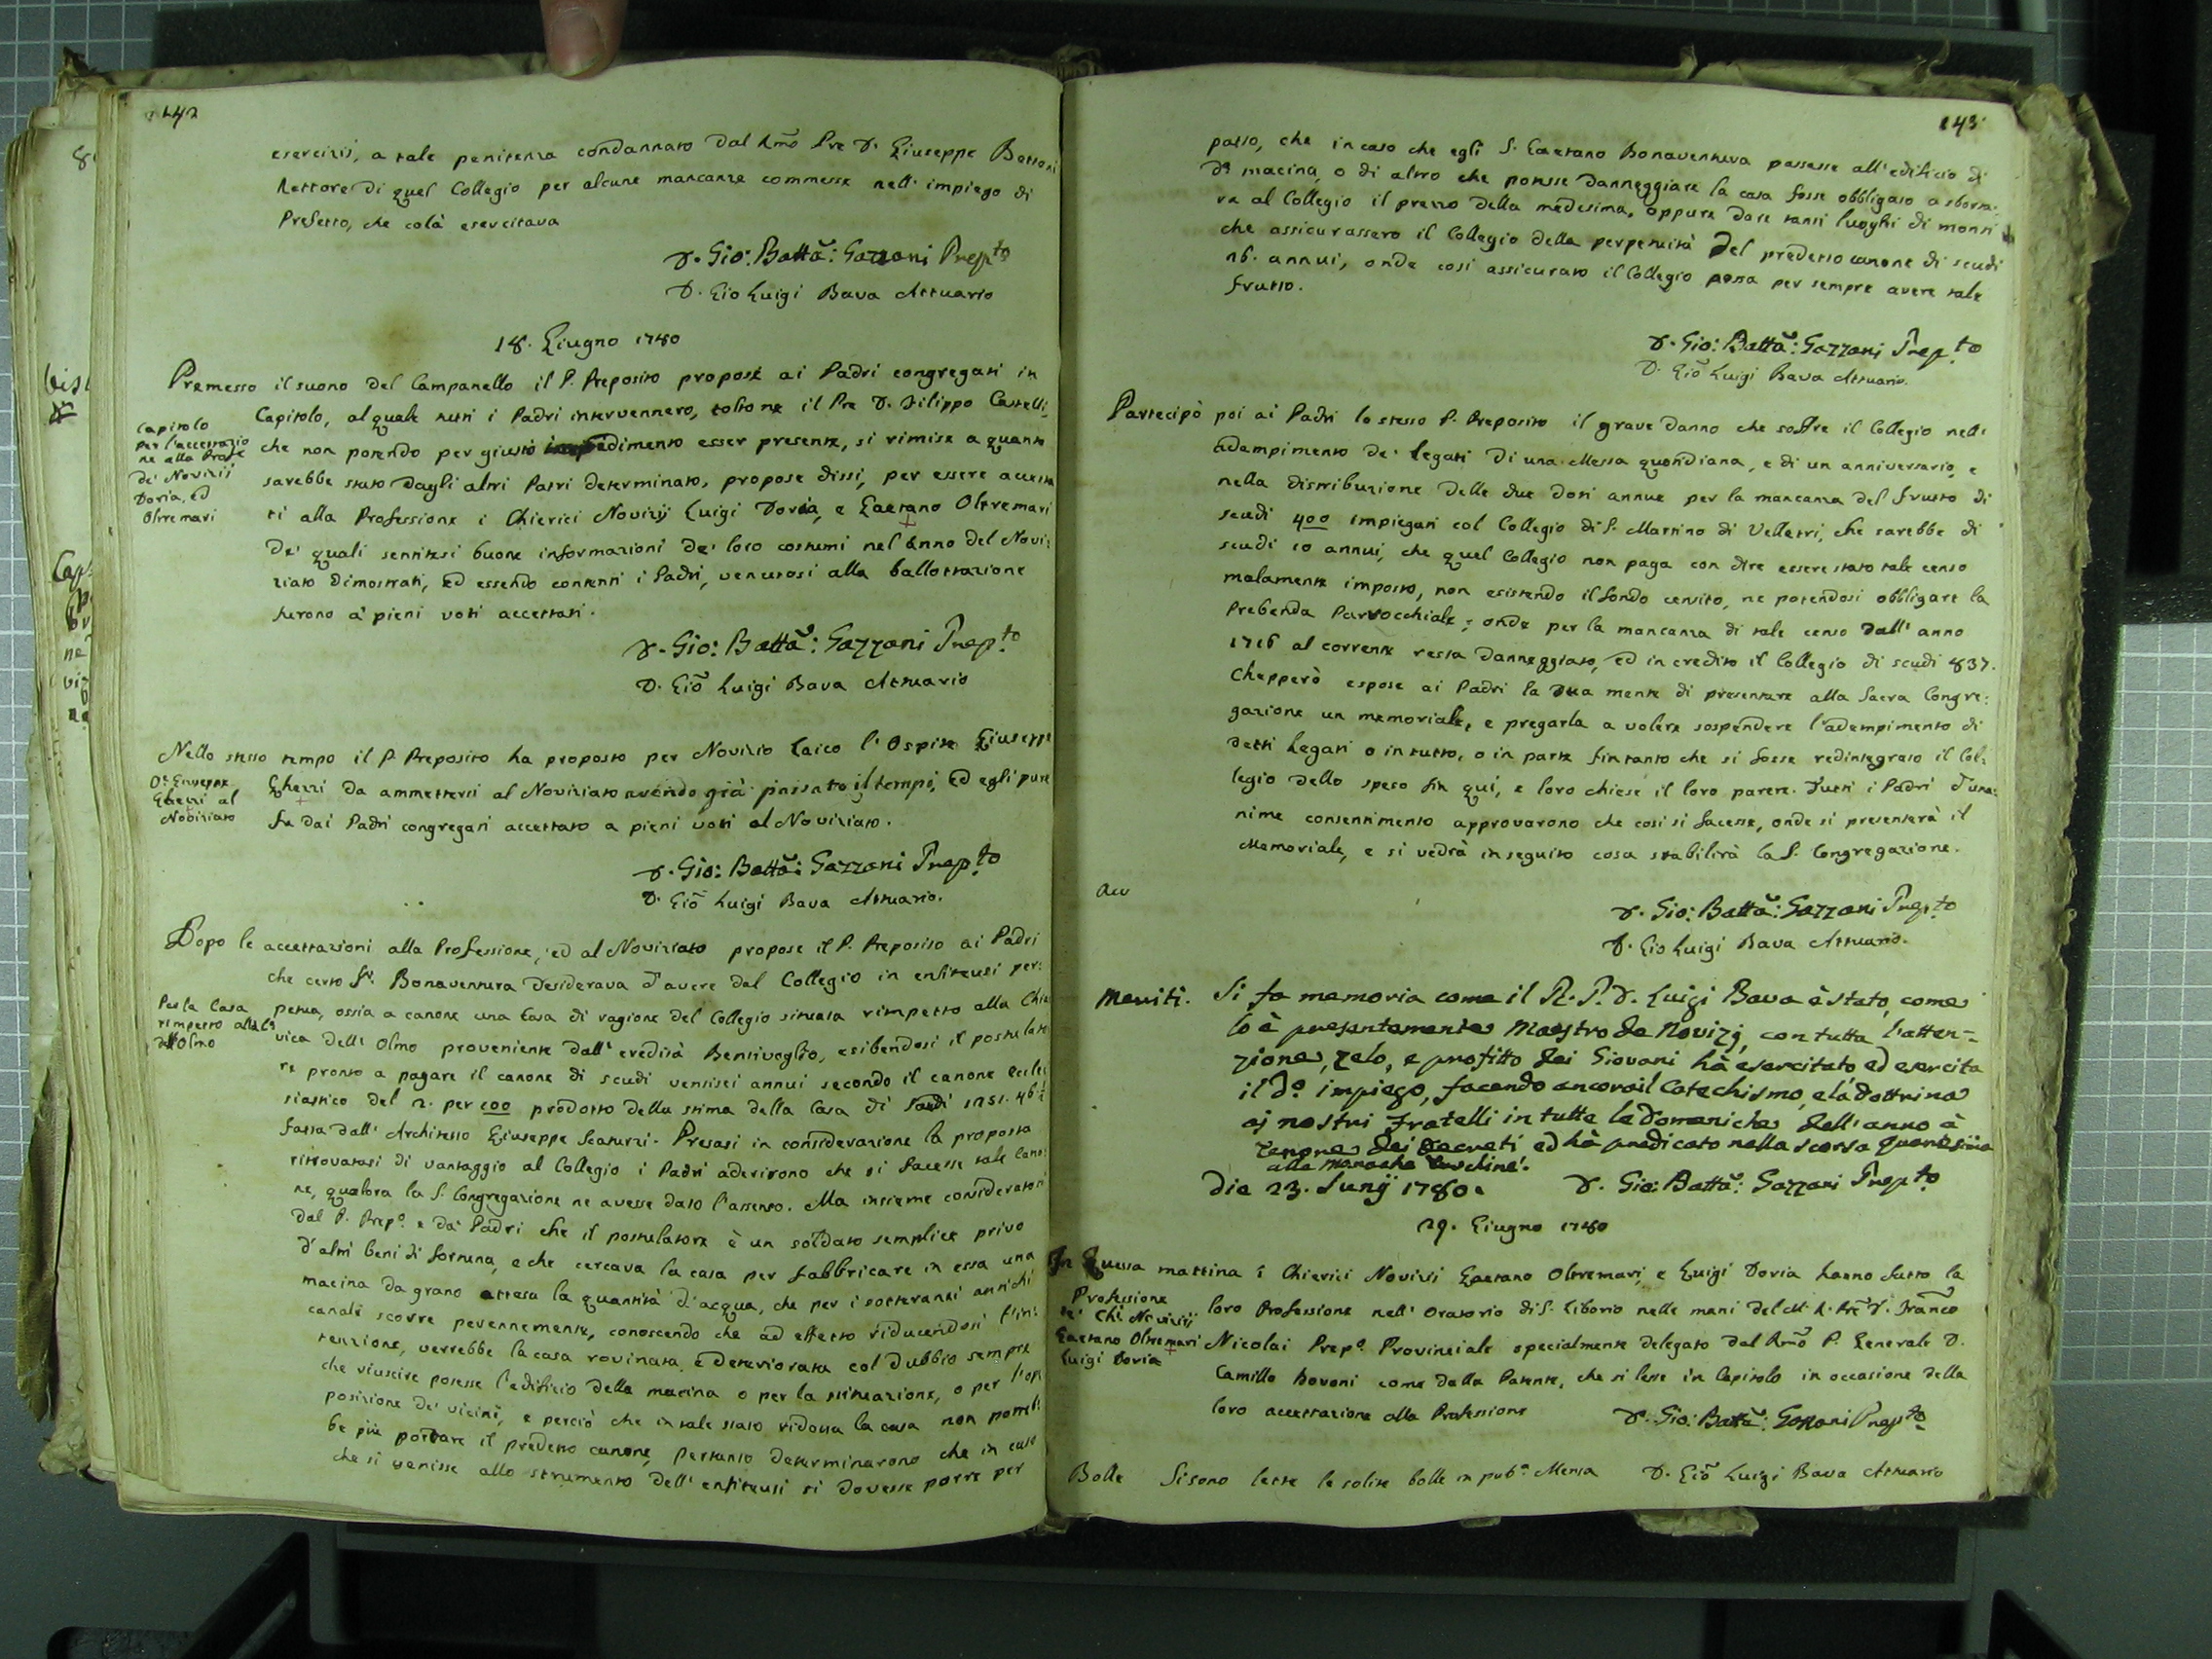 142
esercizii, a tale penitenza condannato dal Rmõ Pre D. Giuseppe Bettoni
Rettore di quel Collegio per alcune mancanze commesse nell' impiego di
Prefetto, che colà esercitava
D. Gio: Battã: Gazzani Prepto
D. Gio Luigi Bava Attuario
18. Giugno 1780
Premesso il suono del Campanello il P. Preposito propose ai Padri congregati in
Capitolo, al quale tutti i Padri intervennero, toltone il Pre D. Filippo Castelli,
Capitolo
per l'accettazio
ne alla Profe
de' Novizii
Doria, ed
Oltremari
che non potendo per giusto impedimento esser presente, si rimise a quanto
sarebbe stato dagli altri Patri determinato, propose dissi, per essere accetta
ti alla Professione i Chierici Novizij Luigi Doria, e Gaetano Oltremari
de' quali sentitesi buone informazioni de' loro costumi nel Anno del Novi:
ziato dimostrati, ed essendo contenti i Padri, venutosi alla ballottazione
furono a' pieni voti accettati.
D. Gio: Battã: Gazzani Prepto
D. Giõ Luigi Bava Attuario
Nello stesso tempo il P. Preposito ha proposto per Novizio Laico l'Ospite Giuseppe
Oe. Giuseppe
Gherzi al
Noviziato
Gherzi da ammettersi al Noviziato avendo già passato il tempo, ed egli pure
fu dai Padri congregati accettato a pieni voti al Noviziato.
D. Gio: Battã: Gazzani Prepto
D. Giõ Luigi Bava Attuario.
Dopo le accettazioni alla Professione, ed al Noviziato propose il P. Preposito ai Padri
che certo Sr. Bonaventura desiderava d'avere dal Collegio in enfiteusi per:
Per la Casa
rimpetto alla Ca
dell'Olmo
petua, ossia a canone una Casa di ragione del Collegio situata rimpetto alla Chia
vica dell' Olmo proveniente dall' eredità Bentivoglio, esibendosi il postulato
re pronto a pagare il canone di scudi ventisei annui secondo il canone Eccle
siastico del 2. per 100 prodotto della stima della Casa di Scudi 1251. 46 ½
fatta dall' Architetto Giuseppe Scaturzi. Presasi in considerazione la proposta
ritrovatasi di vantaggio al Collegio i Padri aderirono che si facesse tale Cano:
ne, qualora la S. Congregazione ne avesse dato l'assenso. Ma insieme consideratosi
dal P. Prepo. e da' Padri che il postulatore è un soldato semplice privo
d'altri beni di fortuna, e che cercava la casa per fabbricare in essa una
macina da grano attesa la quantità d'acqua, che per i sotterranei antichi
canali scorre perennemente, conoscendo che ad effetto riducendosi l'in:
tenzione, verrebbe la casa rovinata, e deteriorata col dubbio sempre
che riuscire potesse l'edificio della macina o per la situazione, o per l'op:
posizione de' vicini, e perciò che in tale stato ridotta la casa non potreb:
be più portare il predetto canone, pertanto determinarono che in caso
che si venisse allo strumento dell' enfiteusi si dovesse porre per
143
patto, che in caso che egli S. Gaetano Bonaventura passasse all' edificio di
da macina, o di altro che potesse danneggiare la casa fosse obbligato a sborsa:
re al Collegio il prezzo della medesima, oppure dare tanti luoghi di monti
che assicurassero il Collegio della perpetuità del predetto canone di scudi
26. annui, onde così assicurato il Collegio possa per sempre avere tale
frutto.
D. Gio: Battã: Gazzani Prepto
D. Giõ Luigi Bava Attuario.
Partecipò poi ai Padri lo stesso P. Preposito il grave danno che soffre il Collegio nell'
adempimento de' Legati di una Messa quotidiana, e di un anniversario, e
nella distribuzione delle due doti annue per la mancanza del frutto di
scudi 400 impiegati col Collegio di S. Martino di Velletri, che sarebbe di
scudi 10 annui, che quel Collegio non paga con dire essere stato tale censo
malamente imposto, non esistendo il fondo censito, ne potendosi obbligare la
Prebenda Parrocchiale; onde per la mancanza di tale censo dall' anno
1716 al corrente resta danneggiato, ed in credito il Collegio di scudi 837.
Chepperò espose ai Padri la sua mente di presentare alla Sacra Congre:
gazione un memoriale, e pregarla a volere sospendere l'adempimento di
detti Legati o in tutto, o in parte fintanto che si fosse redintegrato il Col:
legio dello speso fin qui, e loro chiese il loro parere. Tutti i Padri d'una:
nime consentimento approvarono che così si facesse, onde si presenterà il
Memoriale, e si vedrà in seguito cosa stabilirà la S. Congregazione.
Acc
D. Gio: Battã: Gazzani Prepto
D. Gio Luigi Bava Attuario.
Meriti. Si fa memoria come il R. P. D. Luigi Bava è stato, come
lo è presentemente Maestro de Novizj, con tutta l'atten=
zione, zelo, e profitto dei Giovani hà esercitato ed esercita
il do. impiego, facendo ancora il Catechismo, e la dottrina
aj nostri fratelli in tutte le domeniche dell' anno à
tenore dei Decreti, ed hà predicato nella scorsa Quaresima
alle Monache
Die 23. Junij 1780. D. Gio: Battã: Gazzani Prepto
29. Giugno 1780
In Questa mattina i Chierici Novizi Gaetano Oltremari, e Luigi Doria hanno fatto la
Professione
de' Chi. Novizij
Gaetano Oltremari
Luigi Doria
loro Professione nell' Oratorio di S. Liborio nelle mani del M. R. Pre D. Franco
Nicolai Prepo. Provinciale specialmente delegato dal Rmõ P. Generale D.
Camillo Bovoni come dalla Patente, che si lesse in Capitolo in occasione della
loro accettazione alla Professione D. Gio: Battã: Gazzani Prepto
Bolle Si sono lette le solite bolle in puba. Mensa D. Giõ Luigi Bava Attuario